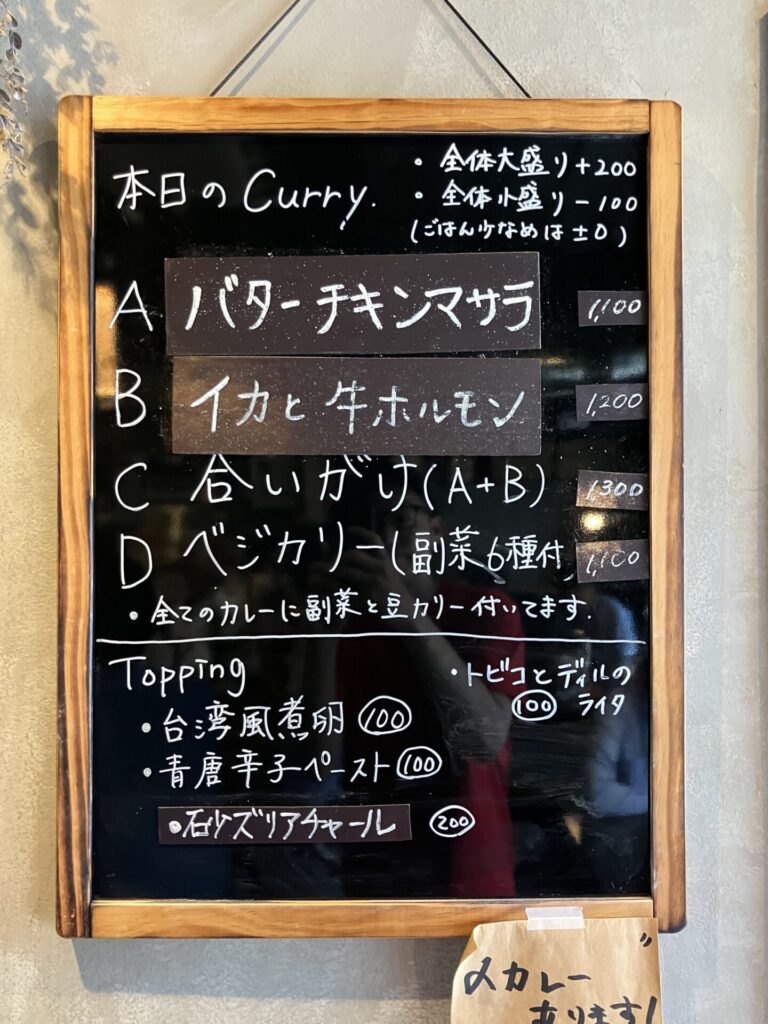 本日のCurry.
・全体大盛り+200
・全体小盛り-100
(ごはん少なめは±0)
A バターチキンマサラ 1,100
B イカと牛ホルモン 1,200
C 合いがけ(A+B) 1,300
D ベジカリー(副菜6種付) 1,100
・全てのカレーに副菜と豆カリー付いてます.
Topping
・台湾風煮卵 100
・青唐辛子ペースト 100
・砂ズリアチャール 200
・トビコとディルの
ライタ 100
〆カレー
あります!